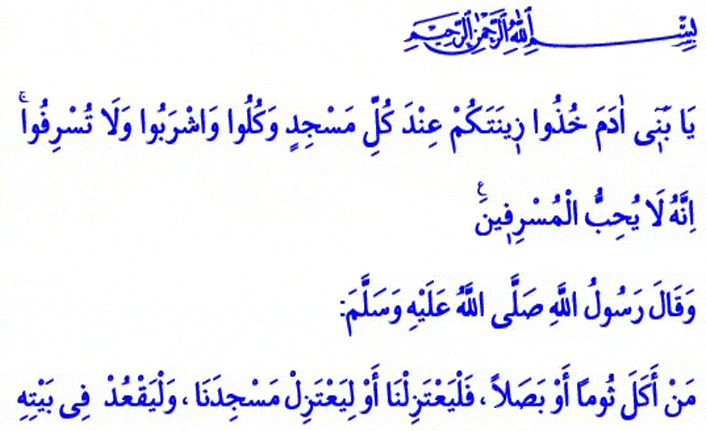 بِسْمِ اللهِ الرَّحْمٰنِ الرَّحِيمِ
يَا بَنٓي اٰدَمَ خُذُوا ز۪ينَتَكُمْ عِنْدَ كُلِّ مَسْجِدٍ وَكُلُوا وَاشْرَبُوا وَلَا تُسْرِفُواۚ
اِنَّهُ لَا يُحِبُّ الْمُسْرِف۪ينَࣖ
وَقَالَ رَسُولُ اللَّهِ صَلَّى اللَّهُ عَلَيْهِ وَسَلَّمَ:
مَنْ أَكَلَ ثُوماً أَوْ بَصَلاً، فَلْيَعْتَزِلْنَا أَوْ لِيَعْتَزِلْ مَسْجِدَنَا، وَلْيَقْعُدْ فِى بَيْتِهِ